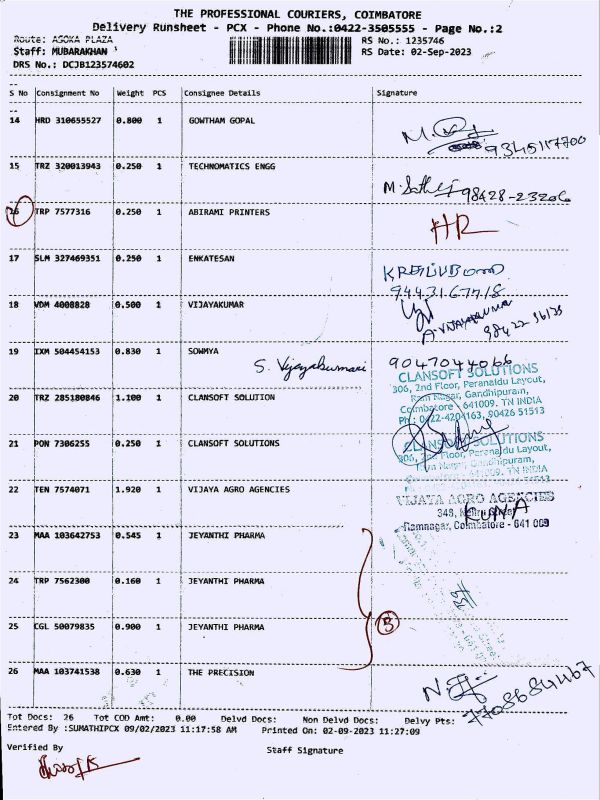 THE PROFESSIONAL COURIERS, COIMBATORE
Delivery Runsheet - PCX - Phone No.:0422-3505555 - Page No.:2
Route: ASOKA PLAZA
RS No.: 1235746
Staff: MUBARAKHAN
RS Date: 02-Sep-2023
DRS No.: DCJB123574602
S No Consignment No Weight PCS Consignee Details Signature
14 HRD 310655527 0.800 1 GOWTHAM GOPAL
9345117700
15 TRZ 320013943 0.250 1 TECHNOMATICS ENGG
M. Sathij 98428-23206
16 TRP 7577316 0.250 1 ABIRAMI PRINTERS
HR
17 SLM 327469351 0.250 1 ENKATESAN
9443167718
18 VDM 4008828 0.500 1 VIJAYAKUMAR
A. VIJAYAKUMAR
98422 36128
19 IXM 504454153 0.830 1 SOWMYA
S. Vijayakumari 9047044066
CLANSOFT SOLUTIONS
306, 2nd Floor, Peranaidu Layout,
Ram Nagar, Gandhipuram,
Coimbatore 641009. TN INDIA
Ph.: 0422-4204163, 90426 51513
20 TRZ 285180846 1.100 1 CLANSOFT SOLUTION
21 PON 7306255 0.250 1 CLANSOFT SOLUTIONS
CLANSOFT SOLUTIONS
306, 2nd Floor, Peranaidu Layout,
Ram Nagar, Gandhipuram,
641009. TN INDIA
22 TEN 7574071 1.920 1 VIJAYA AGRO AGENCIES
VIJAYA AGRO AGENCIES
348, Nehru Street
KUNA
Ramnagar, Coimbatore - 641 009
23 MAA 103642753 0.545 1 JEYANTHI PHARMA
24 TRP 7562300 0.160 1 JEYANTHI PHARMA
25 CGL 50079835 0.900 1 JEYANTHI PHARMA
3
26 MAA 103741538 0.630 1 THE PRECISION
7708684467
Tot Docs: 26 Tot COD Amt: 0.00 Delvd Docs: Non Delvd Docs: Delvy Pts:
Entered By :SUMATHIPCX 09/02/2023 11:17:58 AM Printed On: 02-09-2023 11:27:09
Verified By
Staff Signature